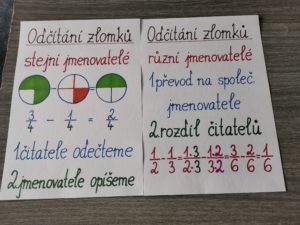 Odčítání zlomků
stejní jmenovatelé
3/4 - 1/4 = 2/4
1čitatele odečteme
2.jmenovatele opíšeme
Odčítání zlomků
různí jmenovatelé
1převod na společ
jmenovatele
2.rozdíl čitatelů
1/2 - 1/3 = 1·3/2·3 - 1·2/3·2 = 3/6 - 2/6 = 1/6